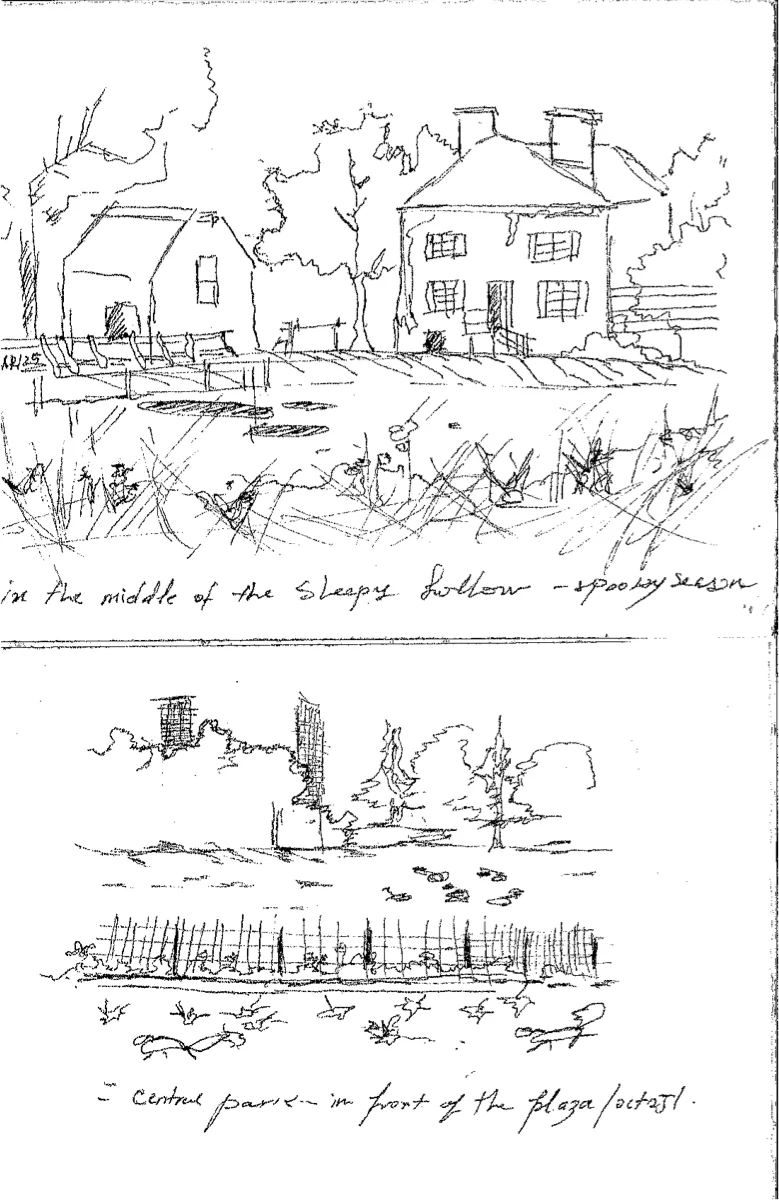 AR/25
in the middle of the Sleepy hollow - spooky season
- Central park - in front of the plaza /oct25/.